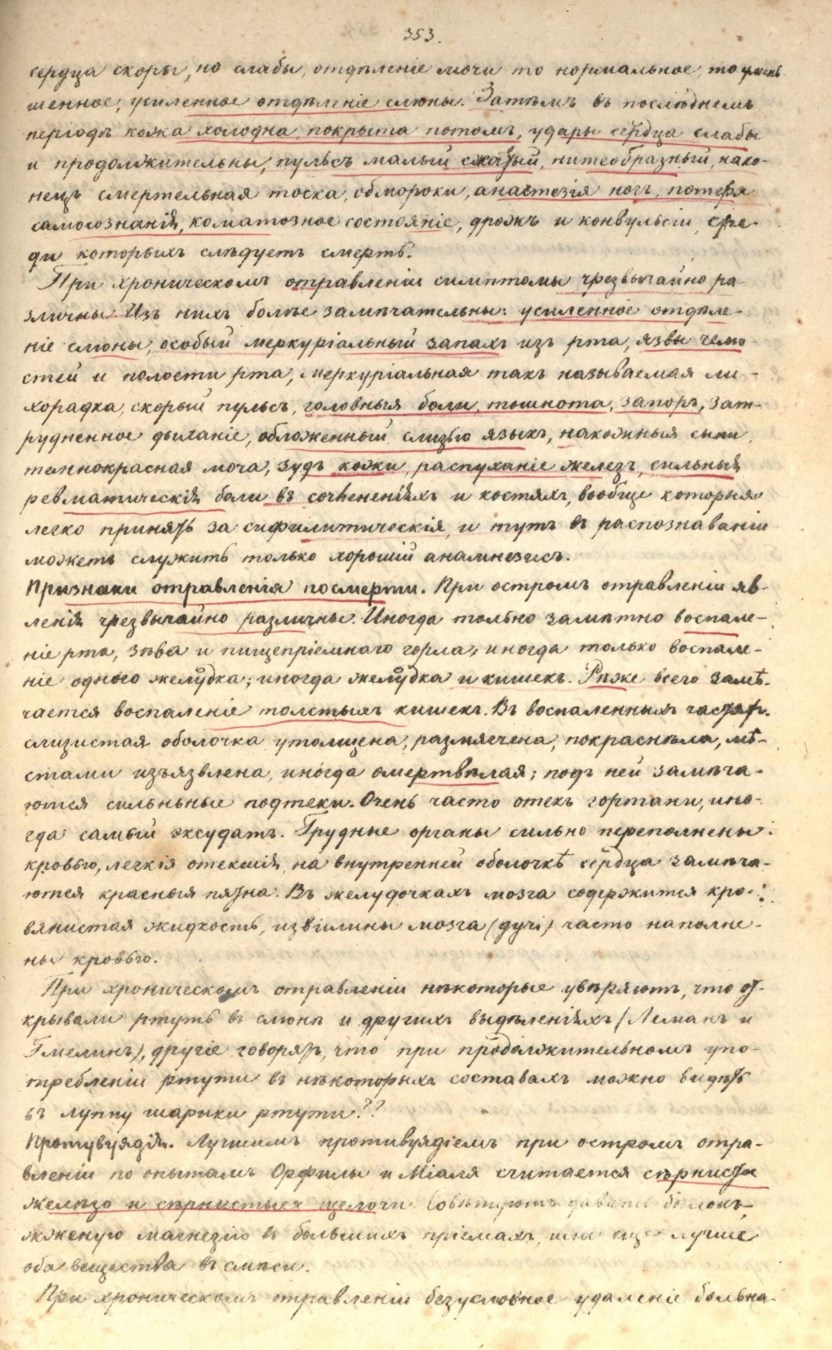 353.
сердца скоры, но слабы, отдѣленіе мочи то нормальное, то умень
шенное, усиленное отдѣленіе слюны. Затѣмъ въ послѣднемъ
періодѣ кожа холодна, покрыта потомъ, удары сердца слабы
и продолжительны, пульсъ малый сжатый, нитеобразный, нако-
нецъ смертельная тоска, обмороки, анастезія ногъ, потеря
самосознанія, коматозное состояніе, дрожь и конвульсіи, сре-
ди которыхъ слѣдуетъ смерть.
При хроническомъ отравленіи симптомы чрезвычайно ра
зличны. Изъ нихъ болѣе замѣчательны: усиленное отдѣле-
ніе слюны, особый меркуріальный запахъ изъ рта, язвы челю
стей и полости рта, меркуріальная такъ называемая ли-
хорадка, скорый пульсъ, головныя боли, тошнота, запоръ, зат-
рудненное дыханіе, обложенный слизью языкъ, накожныя сыпи,
темнокрасная моча, зудъ кожи, распуханіе железъ, сильныя
ревматическія боли въ сочлененіяхъ и костяхъ, вообще которыя
легко принять за сифилитическія, и тутъ въ распознаваніи
можетъ служить только хорошій анамнезисъ.
Признаки отравленія посмерти. При остромъ отравленіи яв-
ленія чрезвычайно различны. Иногда только замѣтно воспале-
ніе рта, зѣва и пищепріемнаго горла, иногда только воспале-
ніе одного желудка; иногда желудка и кишекъ. Рѣже всего замѣ-
чается воспаленіе толстыхъ кишекъ. Въ воспаленныхъ частях.
слизистая оболочка утолщена, размягчена, покраснѣла, мѣ-
стами изъязвлена, иногда омертвѣлая; подъ ней замѣча-
ются сильныные подтеки. Очень часто отекъ гортани, ино-
гда самый эксудатъ. Грудные органы сильно переполнены
кровью, легкія отекшія, на внутренней оболочкѣ сердца замѣча-
ются красныя пятна. Въ желудочкахъ мозга содержится кро-
вянистая жидкость, извилины мозга (дучі) часто наполне-
ны кровью.
При хроническомъ отравленіи нѣкоторые увѣряютъ, что от-
крывали ртуть въ слюнѣ и другихъ выдѣленіяхъ (Леманъ и
Гмелинъ), другіе говорятъ, что при продолжительномъ упо-
требленіи ртути въ нѣкоторыхъ составахъ можно видѣть
въ луппу шарики ртути??
Противуядія. Лучшимъ противуядіемъ при остромъ отра-
вленіи по опытамъ Орфилы и Міаля считается сѣрнистое
желѣзо и сѣрнистыя щелочи. Совѣтуютъ давать бѣлокъ,
жженую магнезію въ большихъ пріемахъ, или еще лучше
оба вещества въ смѣси.
При хроническомъ отравленіи безусловное удаленіе больна-